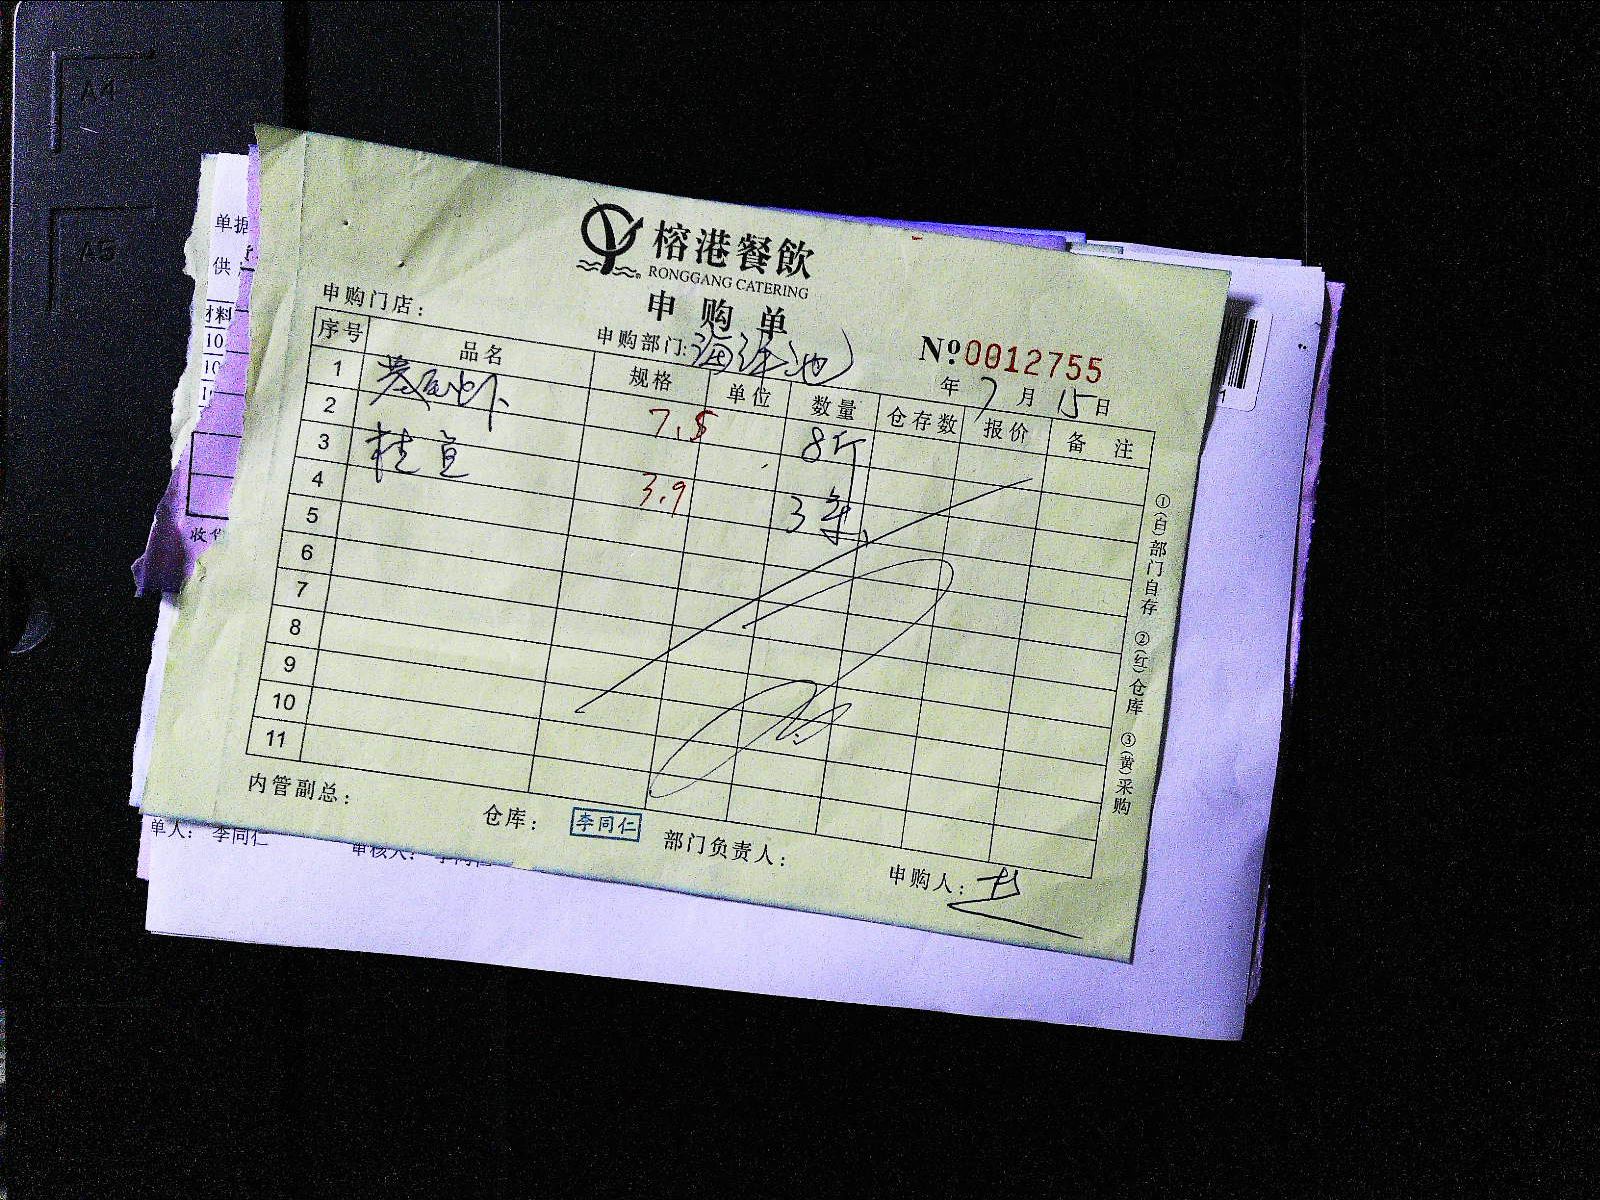 A4
A5
单据
供
材料
10
10
收货
榕港餐飲
RONGGANG CATERING
申购单
申购门店：
申购部门：海鲜池
№0012755
年7月15日
序号 品名 规格 单位 数量 仓存数 报价 备注
1 7.5 8斤
2
3 桂鱼 3.9 3条
4
5
6
7
8
9
10
11
①(白)部门自存 ②(红)仓库 ③(黄)采购
内管副总： 仓库： 李同仁 部门负责人： 申购人：
单人： 李同仁 审核人： 李同仁